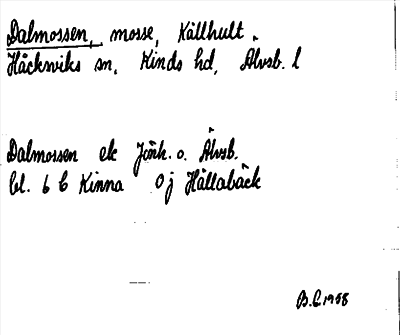 Dalmossen, mosse, Källhult.
Håcksviks sn, Kinds hd, Älvsb. l
Dalmossen ek Jönk. o. Älvsb.
bl. 6 b Kinna Oj Hållabäck
B.L 1958